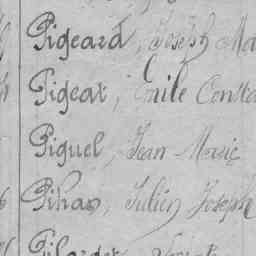 Pigeard, Joseph Ma
Pigeat, Emile Consta
Piguel, Jean Marie
Pihan, Julien Joseph